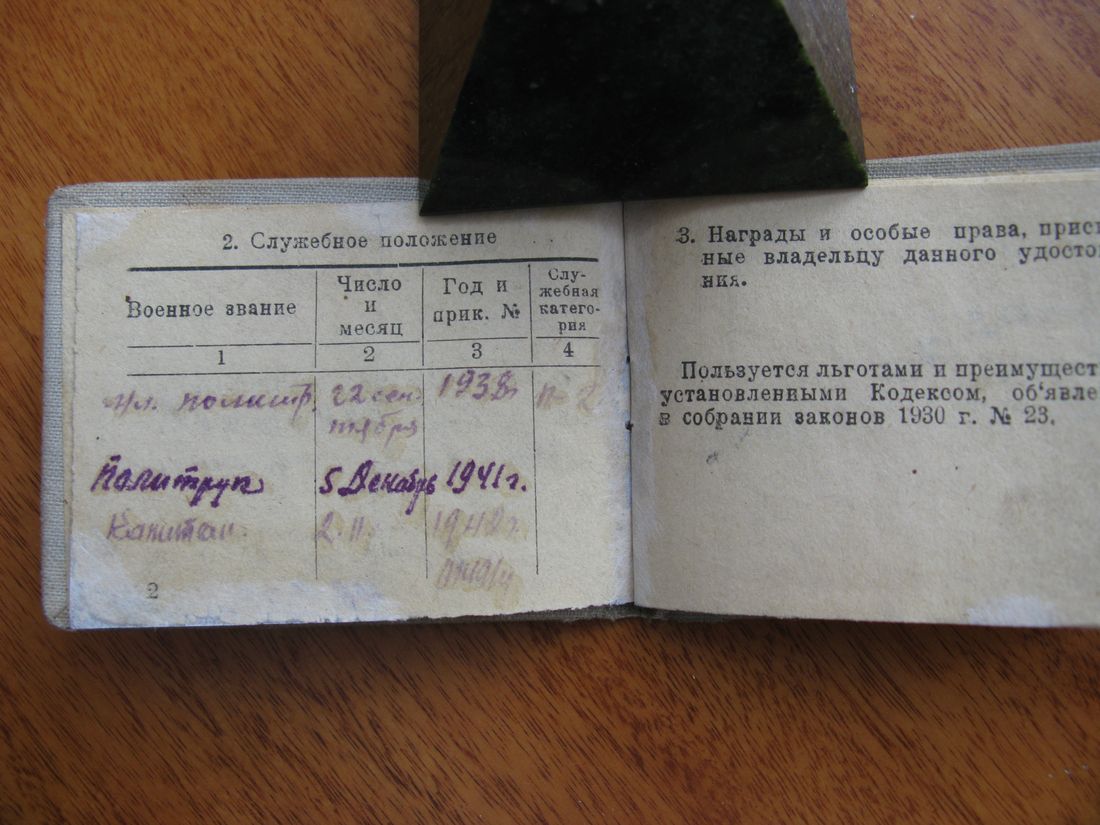 2. Служебное положение
Военное звание
Число
и
месяц
Год и
прик. №
Слу-
жебная
катего-
рия
1 2 3 4
мл. политр. 22 сен 1938г
тября
Политрук 5 Декабрь 1941 г.
Капитан 2. 11. 1942 г.
2
3. Награды и особые права, присв
ные владельцу данного удосто
ния.
Пользуется льготами и преимущест
установленными Кодексом, об‘явле
в собрании законов 1930 г. № 23.